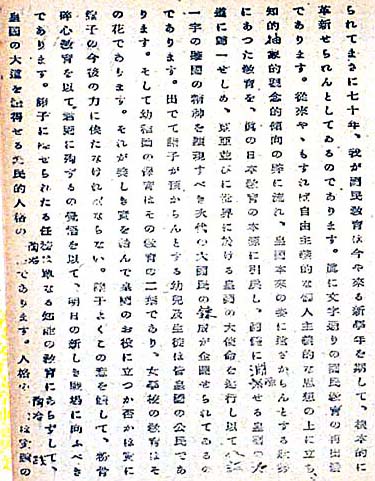 られてまさに七十年、我が國民教育は今や來る新學年を期して、根本的に
革新せられんとしてゐるのであります。眞に文字通りの國民教育の再出發
であります。從來やゝもすれば自由主義的な個人主義的な思想の上に立ち、
知的抽象的觀念的傾向の弊に流れ、皇國本來の姿に遠ざからんとする狀勢
にあつた教育を、眞の日本教育の本源に引戾し、 せる皇國の
道に歸一せしめ、東亞並びに世界に於ける皇國の大使命を遂行し以て八紘
一宇の肇國の精神を顯現すべき次代の大國民の錬成が企圖せられてゐるの
であります。出でて諸子が預からんとする幼兒及生徒は皆皇國の公民であ
ります。そして幼稚園の保育はその教育の二葉であり、女學校の教育はそ
の花であります。それが美しき實を結んで皇國のお役に立つか否かは實に
諸子の今後の力に俟たなければならない。諸子よくこの意を體して、粉骨
碎心教育を以て君國に殉ずるの覺悟を以て、明日の新しき戰場に向ふべき
であります。諸子に課せられたる任務は單なる知能の教育にあらずして、
皇國の大道を體得せる國民的人格の陶冶であります。人格陶冶は實踐の